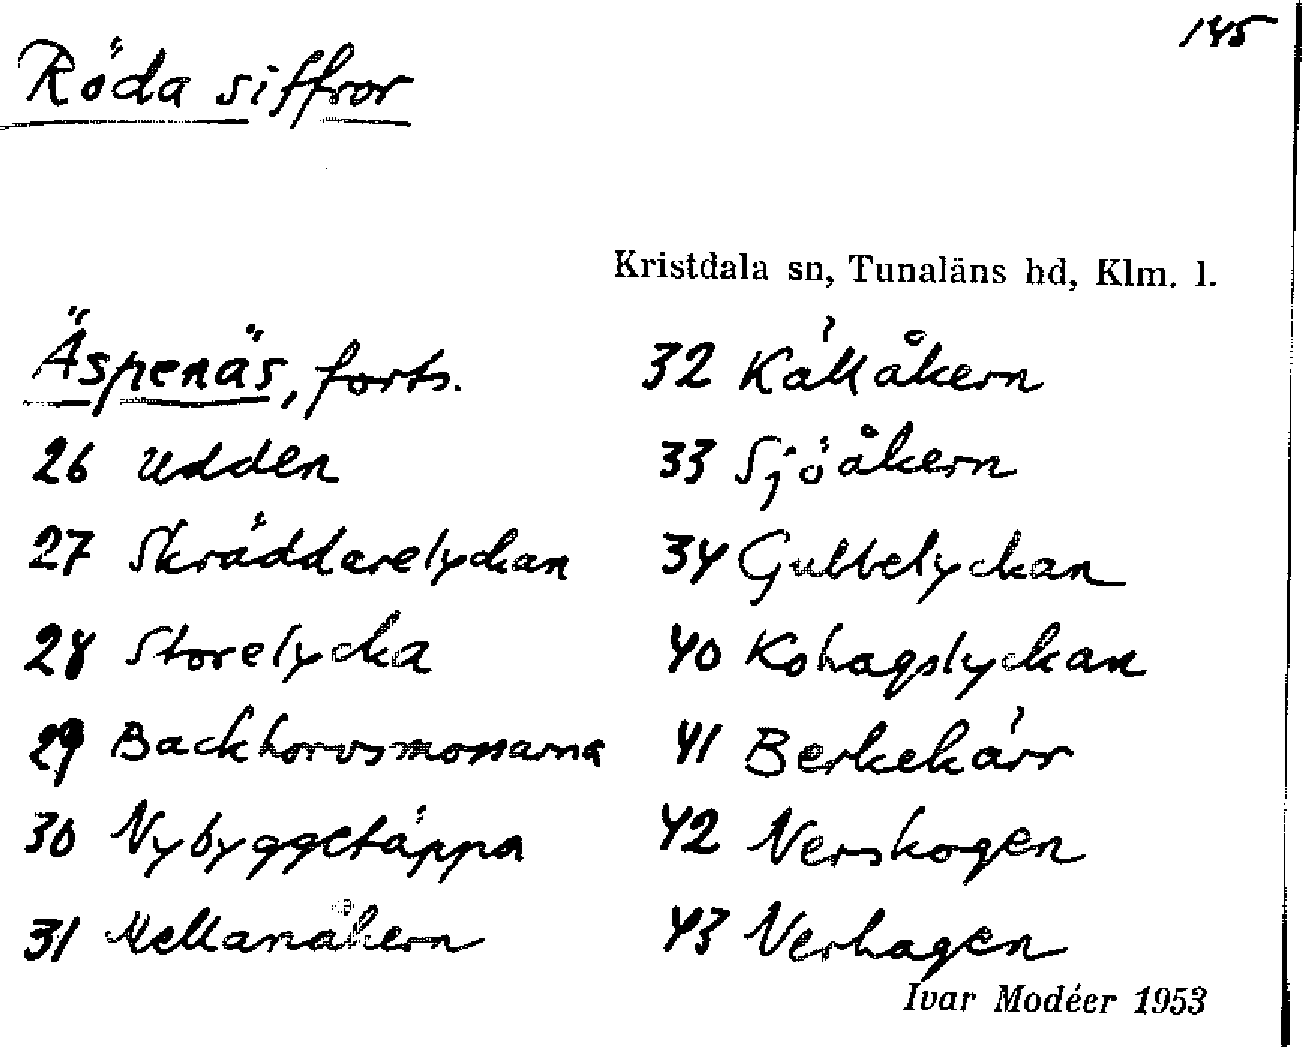 145
Röda siffror
Kristdala sn, Tunaläns hd, Klm. l.
Äspenäs, forts.
26 Udden
27 Skräddarelyckan
28 Storelycka
29 Backhorvsmossarna
30 Nybyggetäppa
31 Mellanåkern
32 Källåkern
33 Sjöåkern
34 Gubbelyckan
40 Kohagslyckan
41 Berkekärr
42 Nerskogen
43 Nerhagen
Ivar Modéer 1953